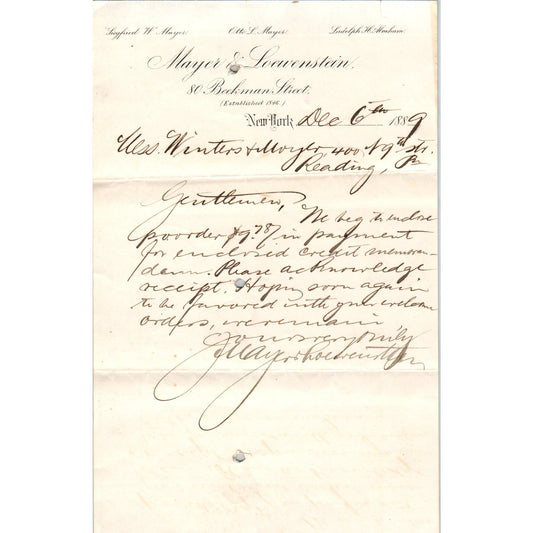 Siegfried W. Mayer. Otto L. Mayer. Ludolph H. Abraham.
Mayer & Loewenstein,
80 Beekman Street,
(Established 1846)
New-York Dec 6th 1889
Mess. Winters & 400 N 9th str.
Reading, Pa
Gentlemen,
We beg to enclose
p o order $9.78/ in payment
for enclosed credit memoran-
dum. Please acknowledge
receipt. Hoping soon again
to be favored with your welcome
orders, we remain
Yours very truly
Mayer & Loewenstein